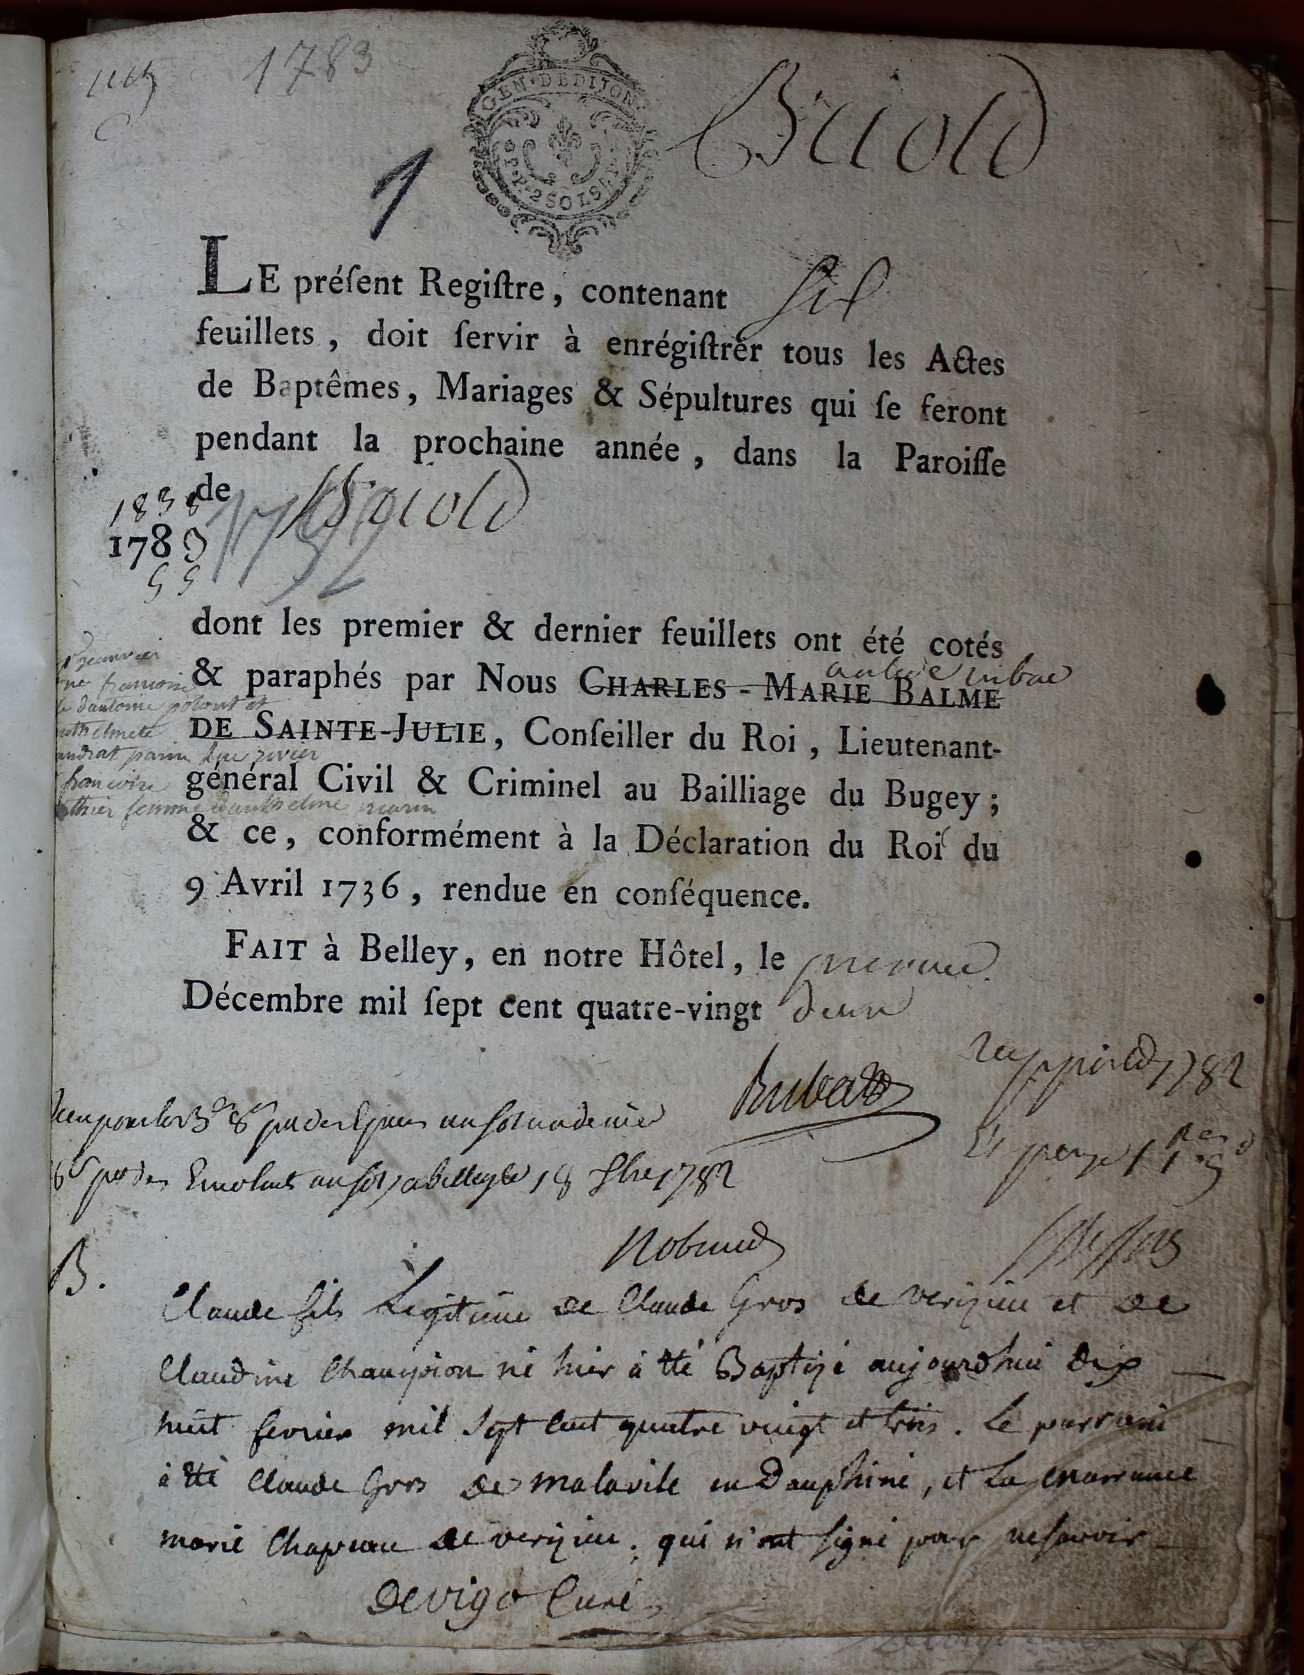 1783
GEN·DE DIJON
2 SOLS
Briord
1
LE préſent Regiſtre, contenant six
feuillets, doit ſervir à enrégiſtrer tous les Actes
de Baptêmes, Mariages & Sépultures qui ſe feront
pendant la prochaine année, dans la Paroiſſe
de Briord
1838
1783
55
1782
dont les premier & dernier feuillets ont été cotés
& paraphés par Nous CHARLES-MARIE BALME
DE SAINTE-JULIE, Conſeiller du Roi, Lieutenant-
général Civil & Criminel au Bailliage du Bugey;
& ce, conformément à la Déclaration du Roi du
9 Avril 1736, rendue en conſéquence.
FAIT à Belley, en notre Hôtel, le premier
Décembre mil ſept cent quatre-vingt deux
janvier
françoise
parin
femme danthelme
1782
a belley le 18 9bre 1782
B.
Claude fils Legitime de Claude Gros de verizieu et de
Claudine Champion né hier à été Baptizé aujourdhui dix
huit fevrier mil sept cent quatre vingt et trois. Le parrain
à été Claude Gros de malavile en Dauphiné, et La marraine
marie Chapeau de verizieu. qui n'ont signé pour ne savoir
Devigo Curé